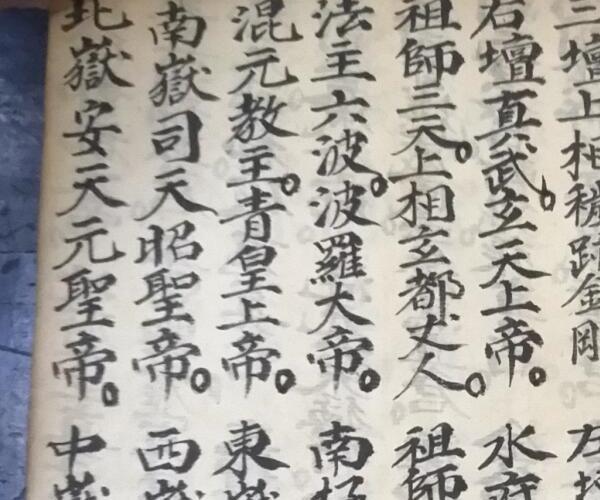 三壇上相穢跡金剛 左壇
右壇真武玄天上帝。水府
祖師三天。上相玄都丈人。祖師
法主六波。波羅大帝。南極
混元教主。青皇上帝。東嶽
南嶽司天昭聖帝。西嶽
北嶽安天元聖帝。中嶽